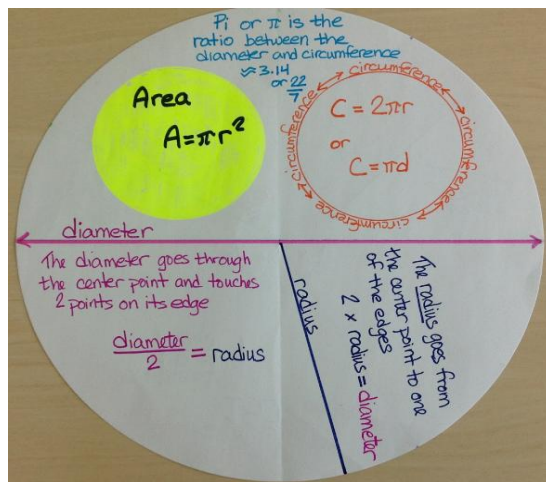 Pi or π is the
ratio between the
diameter and circumference
≈ 3.14
or 22/7
Area
A = πr²
circumference
circumference
circumference
circumference
circumference
C = 2πr
or
C = πd
diameter
The diameter goes through
the center point and touches
2 points on its edge
diameter/2 = radius
radius
The radius goes from
the center point to one
of the edges
2 x radius = diameter